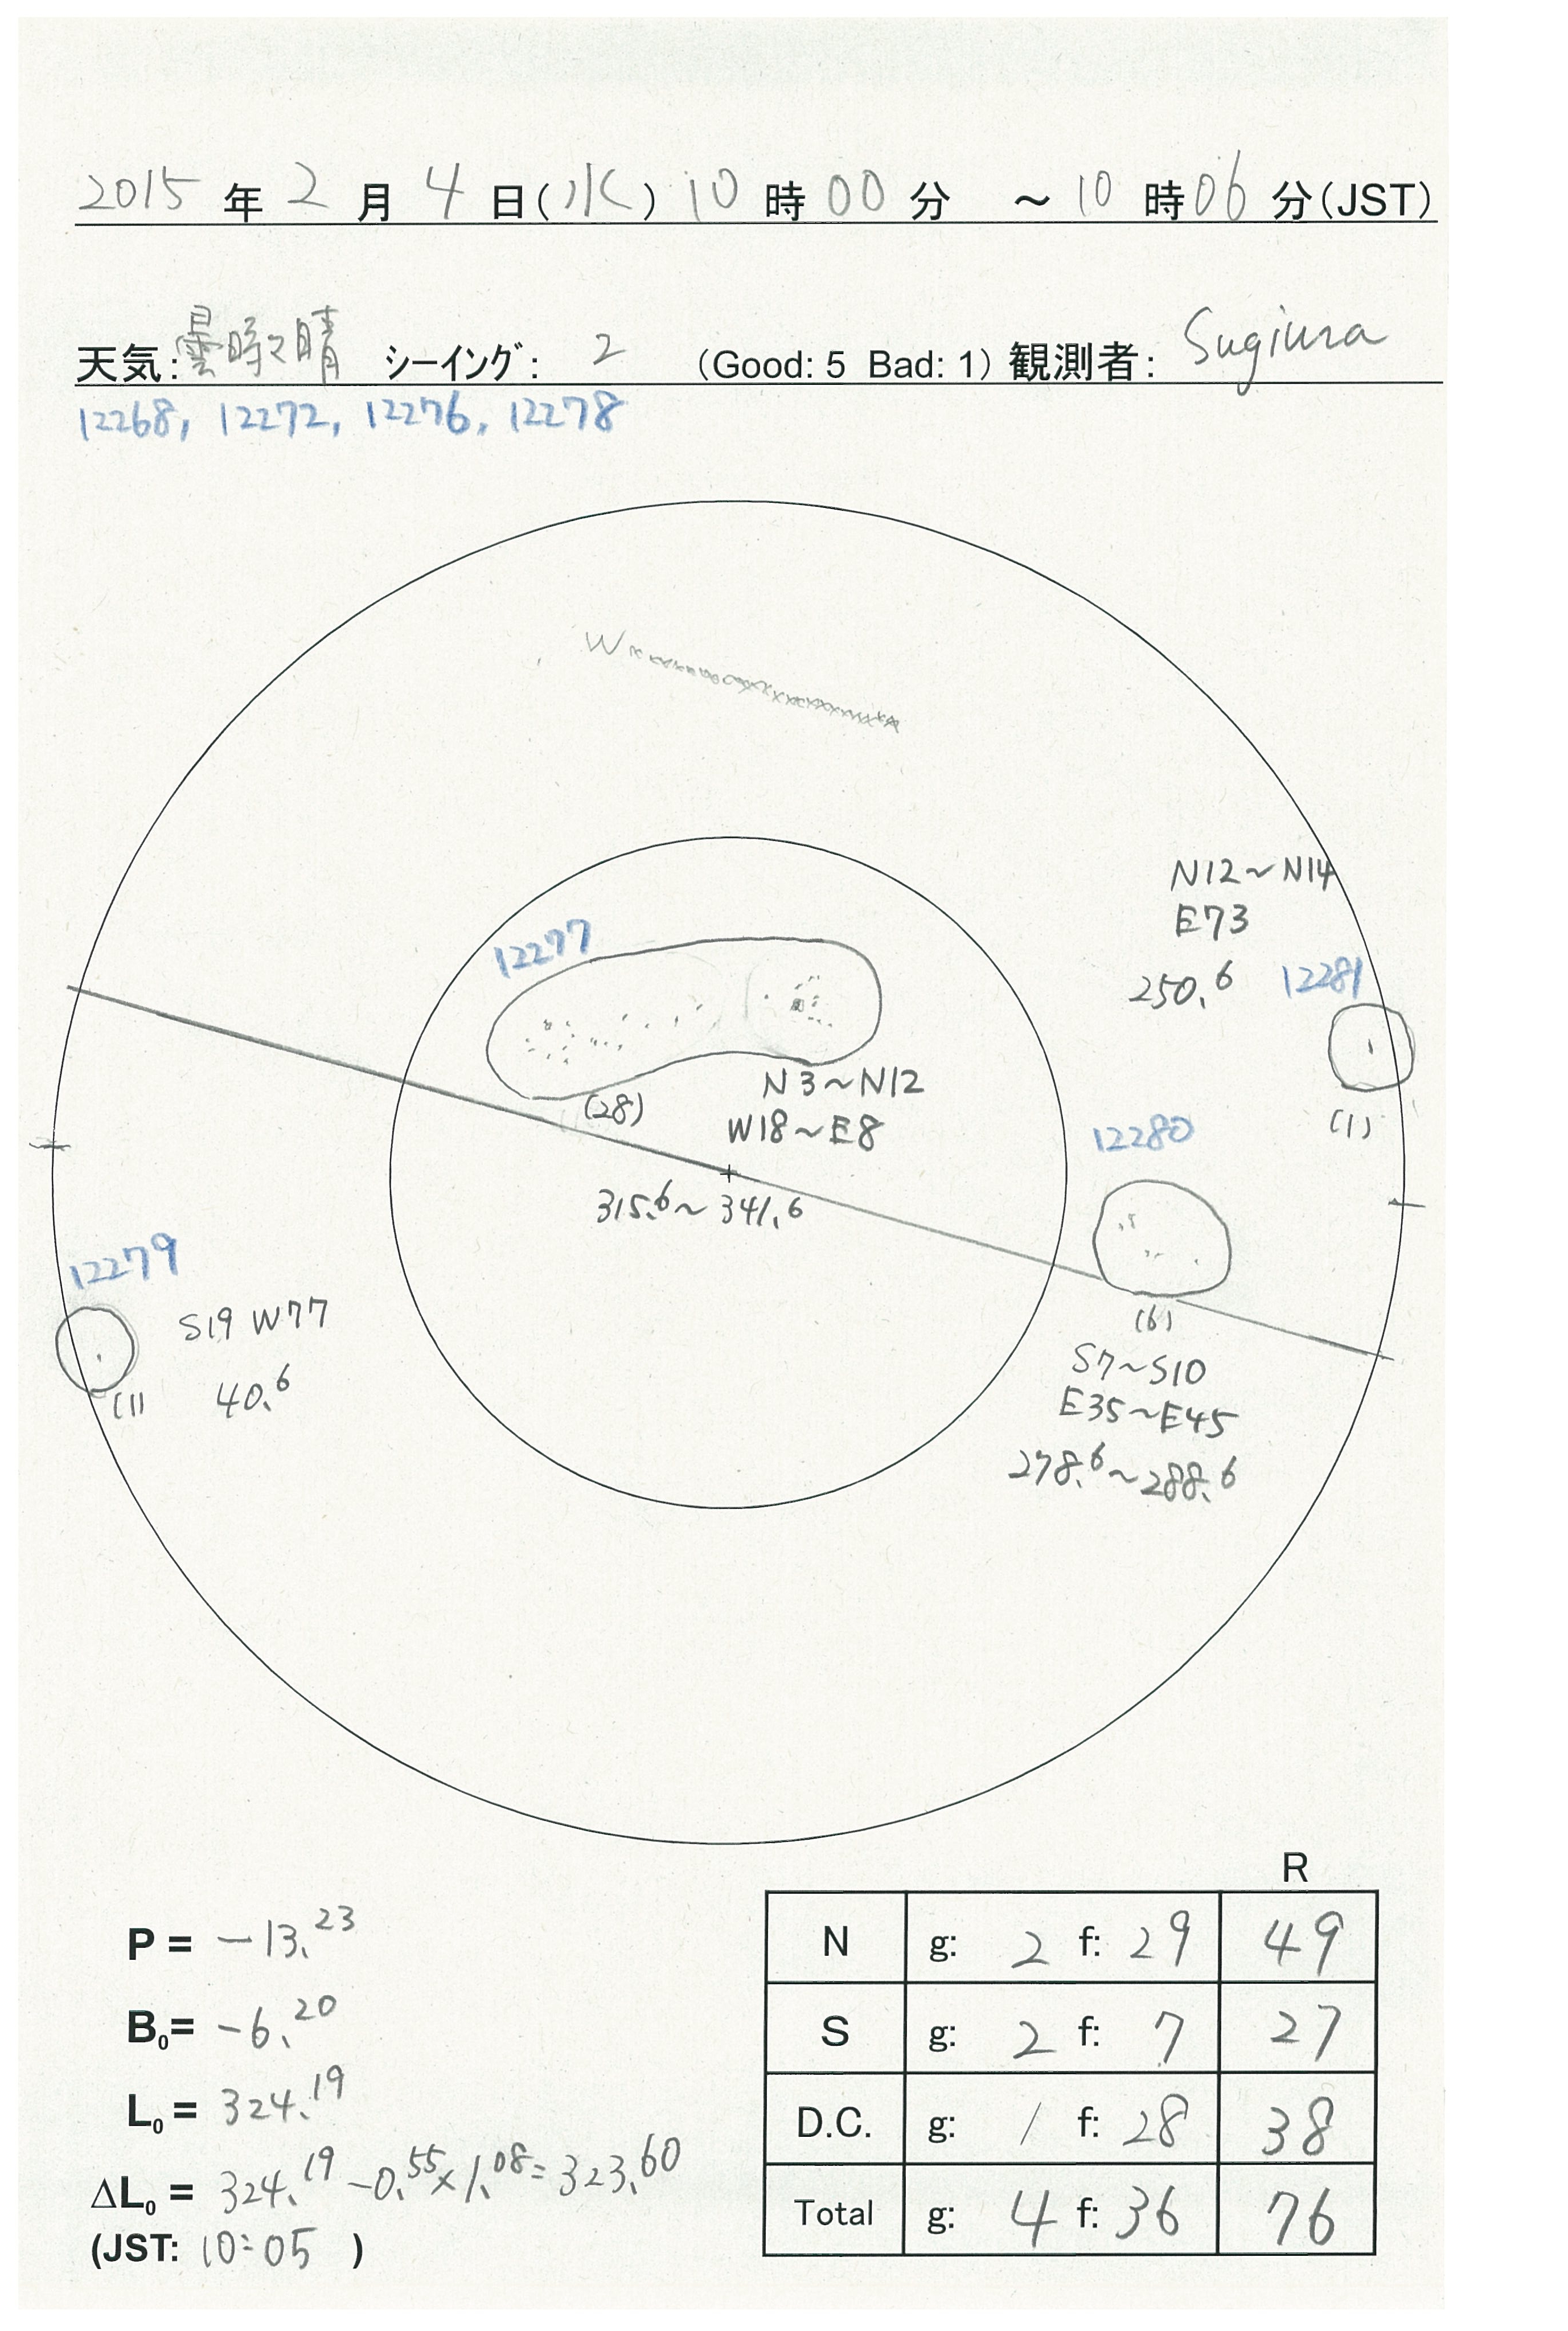 2015 年 2 月 4 日(水) 10 時 00 分 ～ 10 時 06 分(JST)
天気: 曇時々晴 シーイング: 2 (Good: 5 Bad: 1) 観測者: Sugiura
12268, 12272, 12276, 12278
W
N12～N14
E73
250.6
12281
(1)
12277
(28)
N3～N12
W18～E8
315.6～341.6
12280
(6)
S7～S10
E35～E45
278.6～288.6
12279
S19 W77
40.6
(1)
P = -13.23
B0= -6.20
L0 = 324.19
ΔL0 = 324.19 -0.55×1.08= 323.60
(JST: 10:05 )
R
N g: 2 f: 29 49
S g: 2 f: 7 27
D.C. g: 1 f: 28 38
Total g: 4 f: 36 76